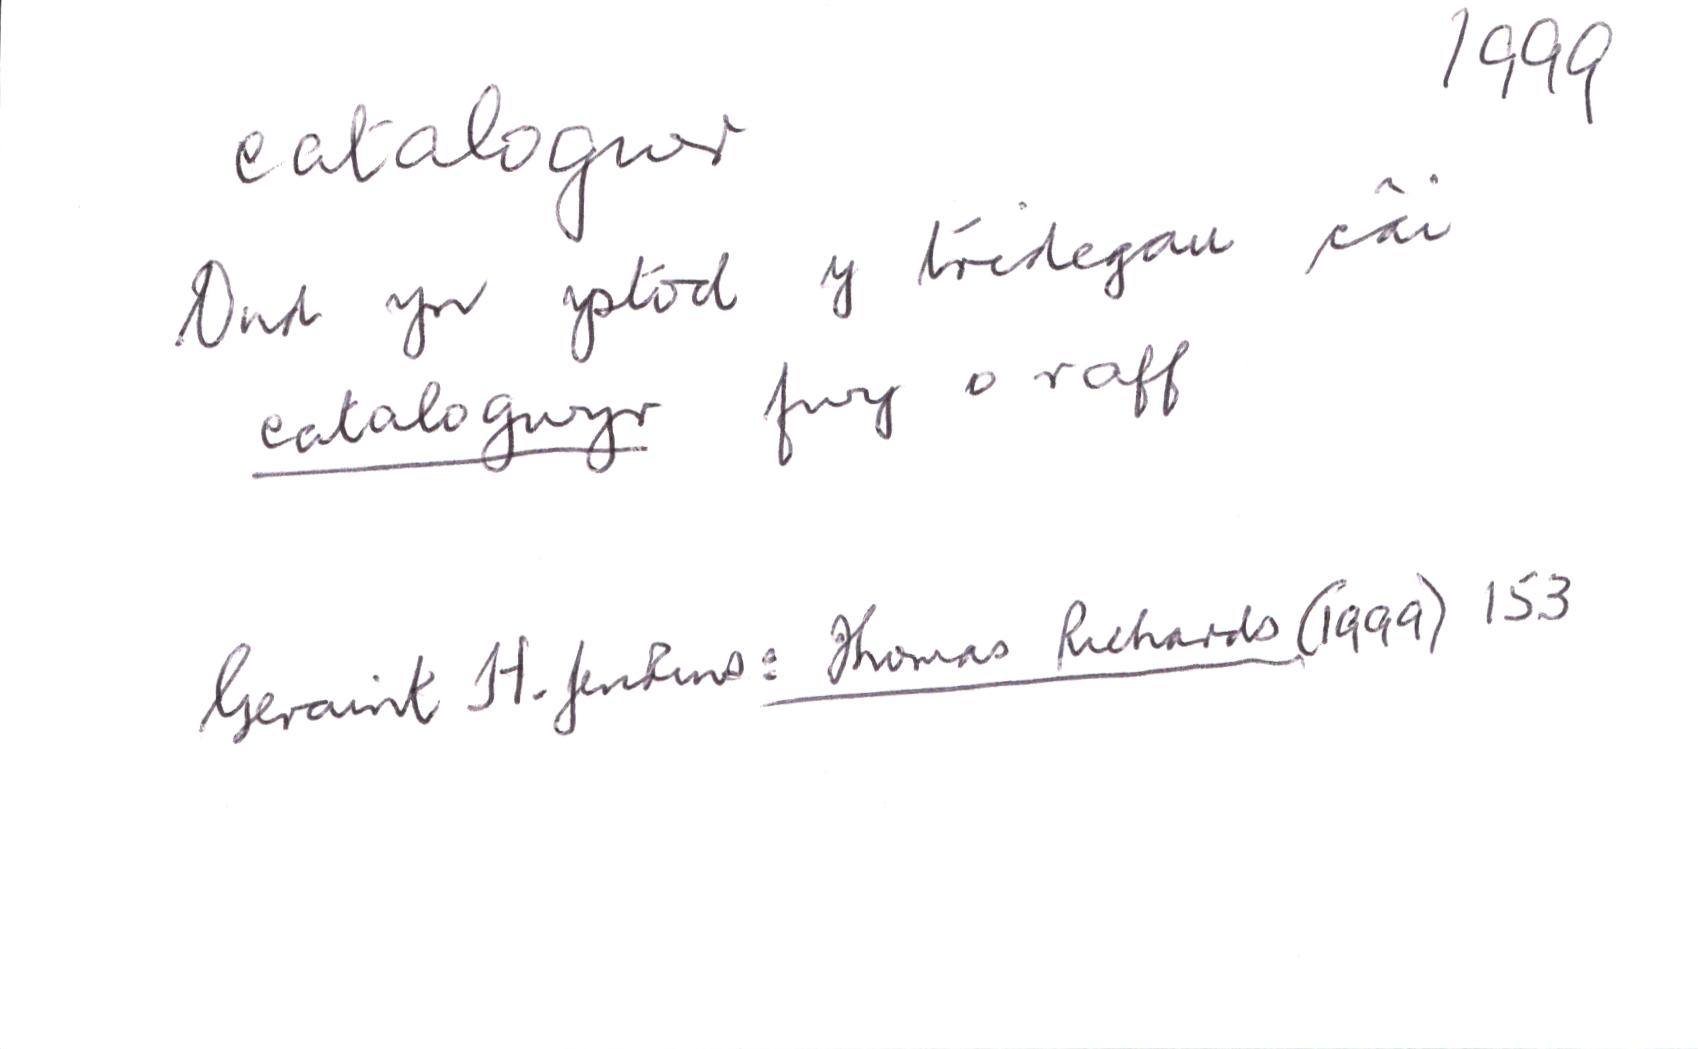 1999
catalogwr
Ond yn ystod y tridegau câi
catalogwyr fwy o raff
Geraint H. Jenkins: Thomas Richards (1999) 153